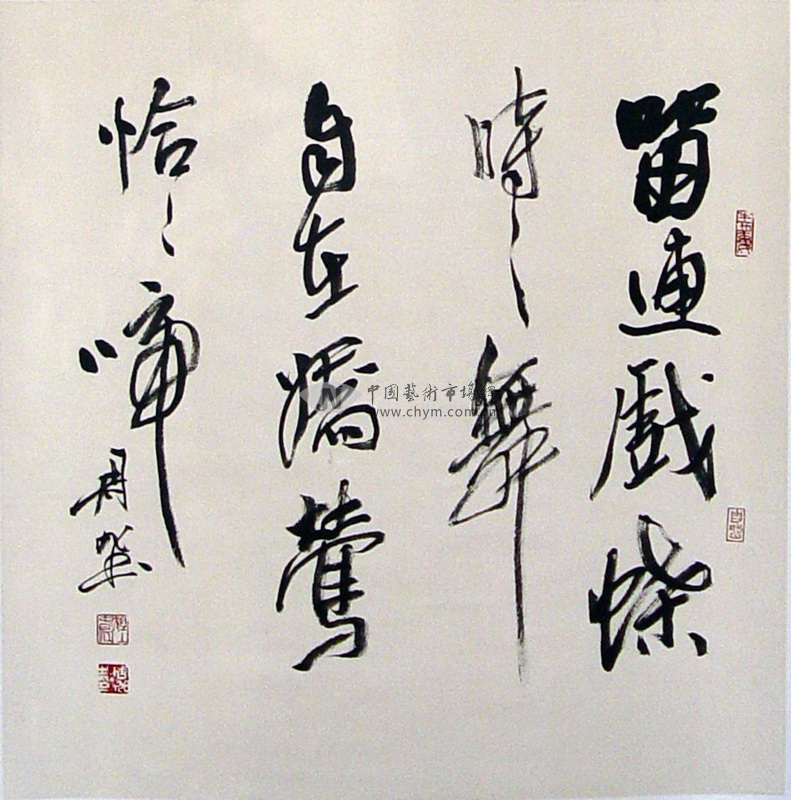 留連戲蝶
時々舞
自在嬌鶯
恰々啼
中國藝術市場網
www.chym.com.cn